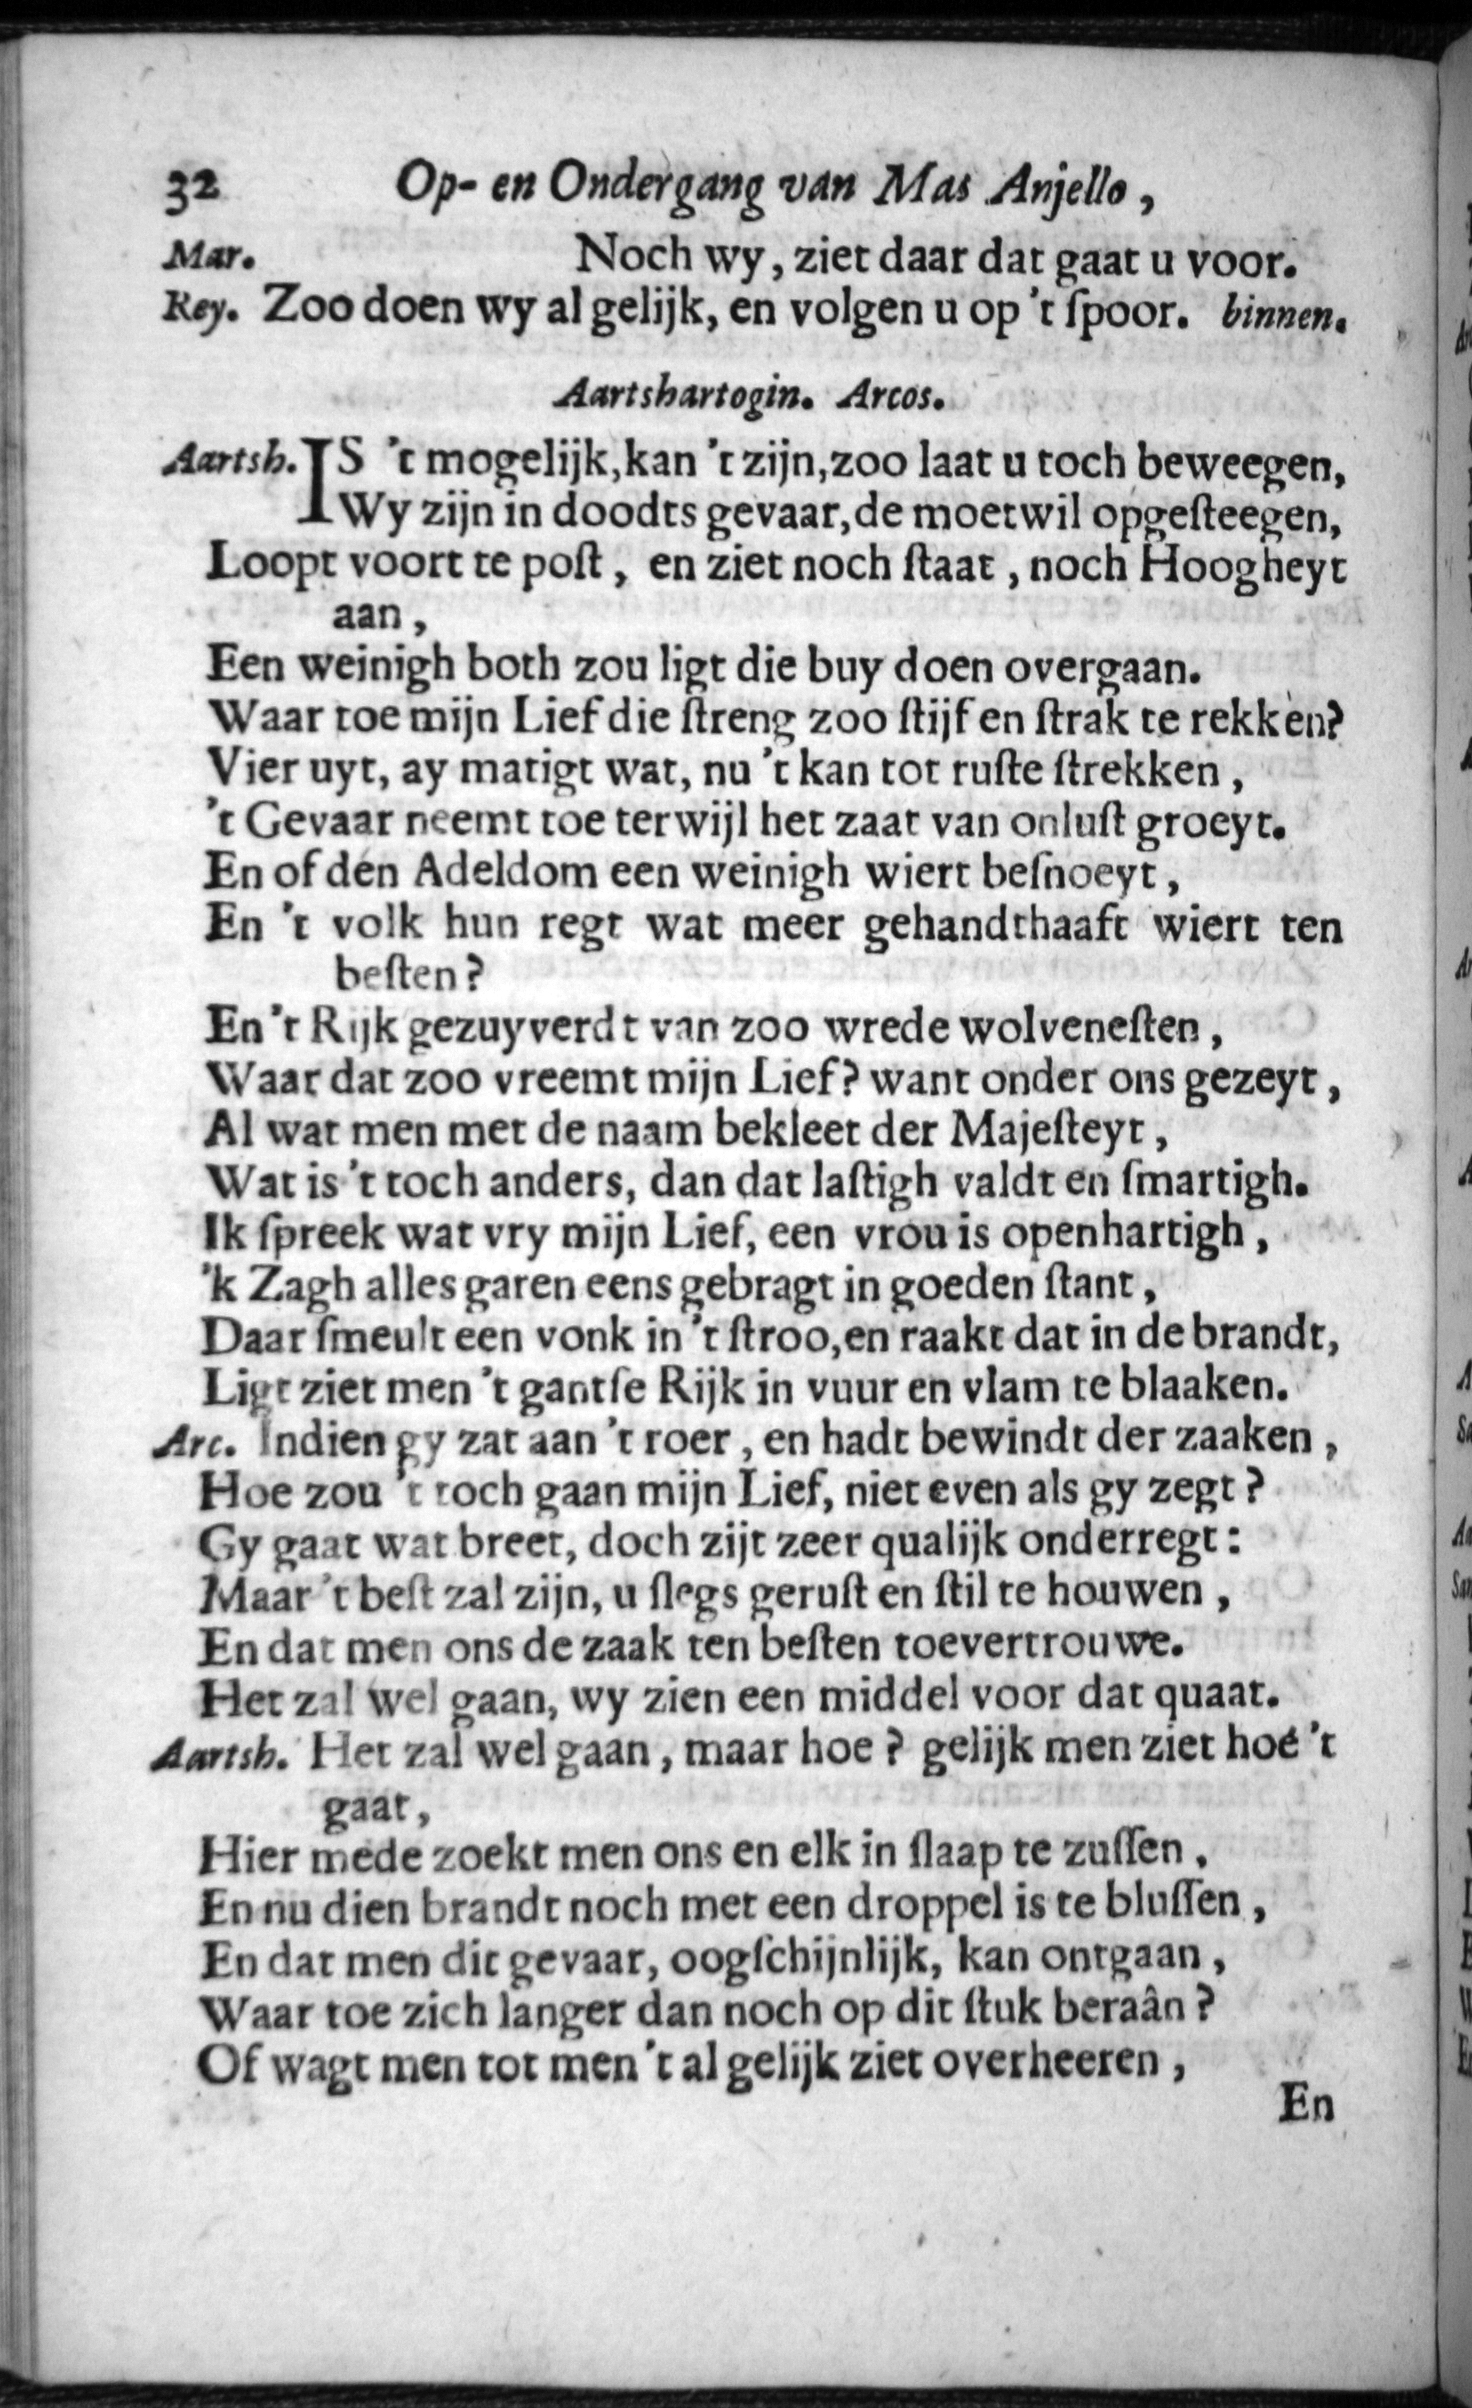 32 Op- en Ondergang van Mas Anjello,
Mar. Noch wy, ziet daar dat gaat u voor.
Rey. Zoo doen wy al gelijk, en volgen u op 't ſpoor. binnen.
Aartshartogin. Arcos.
Aartsh. IS 't mogelijk, kan 't zijn, zoo laat u toch beweegen,
Wy zijn in doodts gevaar, de moetwil opgeſteegen,
Loopt voort te poſt, en ziet noch ſtaat, noch Hoogheyt
aan,
Een weinigh both zou ligt die buy doen overgaan.
Waar toe mijn Lief die ſtreng zoo ſtijf en ſtrak te rekken?
Vier uyt, ay matigt wat, nu 't kan tot ruſte ſtrekken,
't Gevaar neemt toe terwijl het zaat van onluſt groeyt.
En of den Adeldom een weinigh wiert beſnoeyt,
En 't volk hun regt wat meer gehandthaaft wiert ten
beſten?
En 't Rijk gezuyverdt van zoo wrede wolveneſten,
Waar dat zoo vreemt mijn Lief? want onder ons gezeyt,
Al wat men met de naam bekleet der Majeſteyt,
Wat is 't toch anders, dan dat laſtigh valdt en ſmartigh.
Ik ſpreek wat vry mijn Lief, een vrou is openhartigh,
'k Zagh alles garen eens gebragt in goeden ſtant,
Daar ſmeult een vonk in 't ſtroo, en raakt dat in de brandt,
Ligt ziet men 't gantſe Rijk in vuur en vlam te blaaken.
Arc. Indien gy zat aan 't roer, en hadt bewindt der zaaken,
Hoe zou 't toch gaan mijn Lief, niet even als gy zegt?
Gy gaat wat breet, doch zijt zeer qualijk onderregt:
Maar 't beſt zal zijn, u ſlegs geruſt en ſtil te houwen,
En dat men ons de zaak ten beſten toevertrouwe.
Het zal wel gaan, wy zien een middel voor dat quaat.
Aartsh. Het zal wel gaan, maar hoe? gelijk men ziet hoe 't
gaat,
Hier mede zoekt men ons en elk in ſlaap te zuſſen,
En nu dien brandt noch met een droppel is te bluſſen,
En dat men dit gevaar, oogſchijnlijk, kan ontgaan,
Waar toe zich langer dan noch op dit ſtuk beraân?
Of wagt men tot men 't al gelijk ziet overheeren,
En